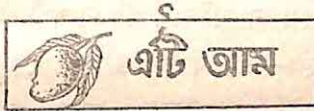 এটি আম